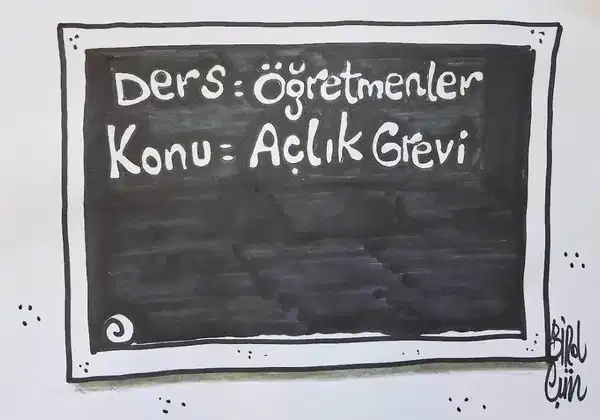 Ders: Öğretmenler
Konu: Açlık Grevi
Birol
Çün